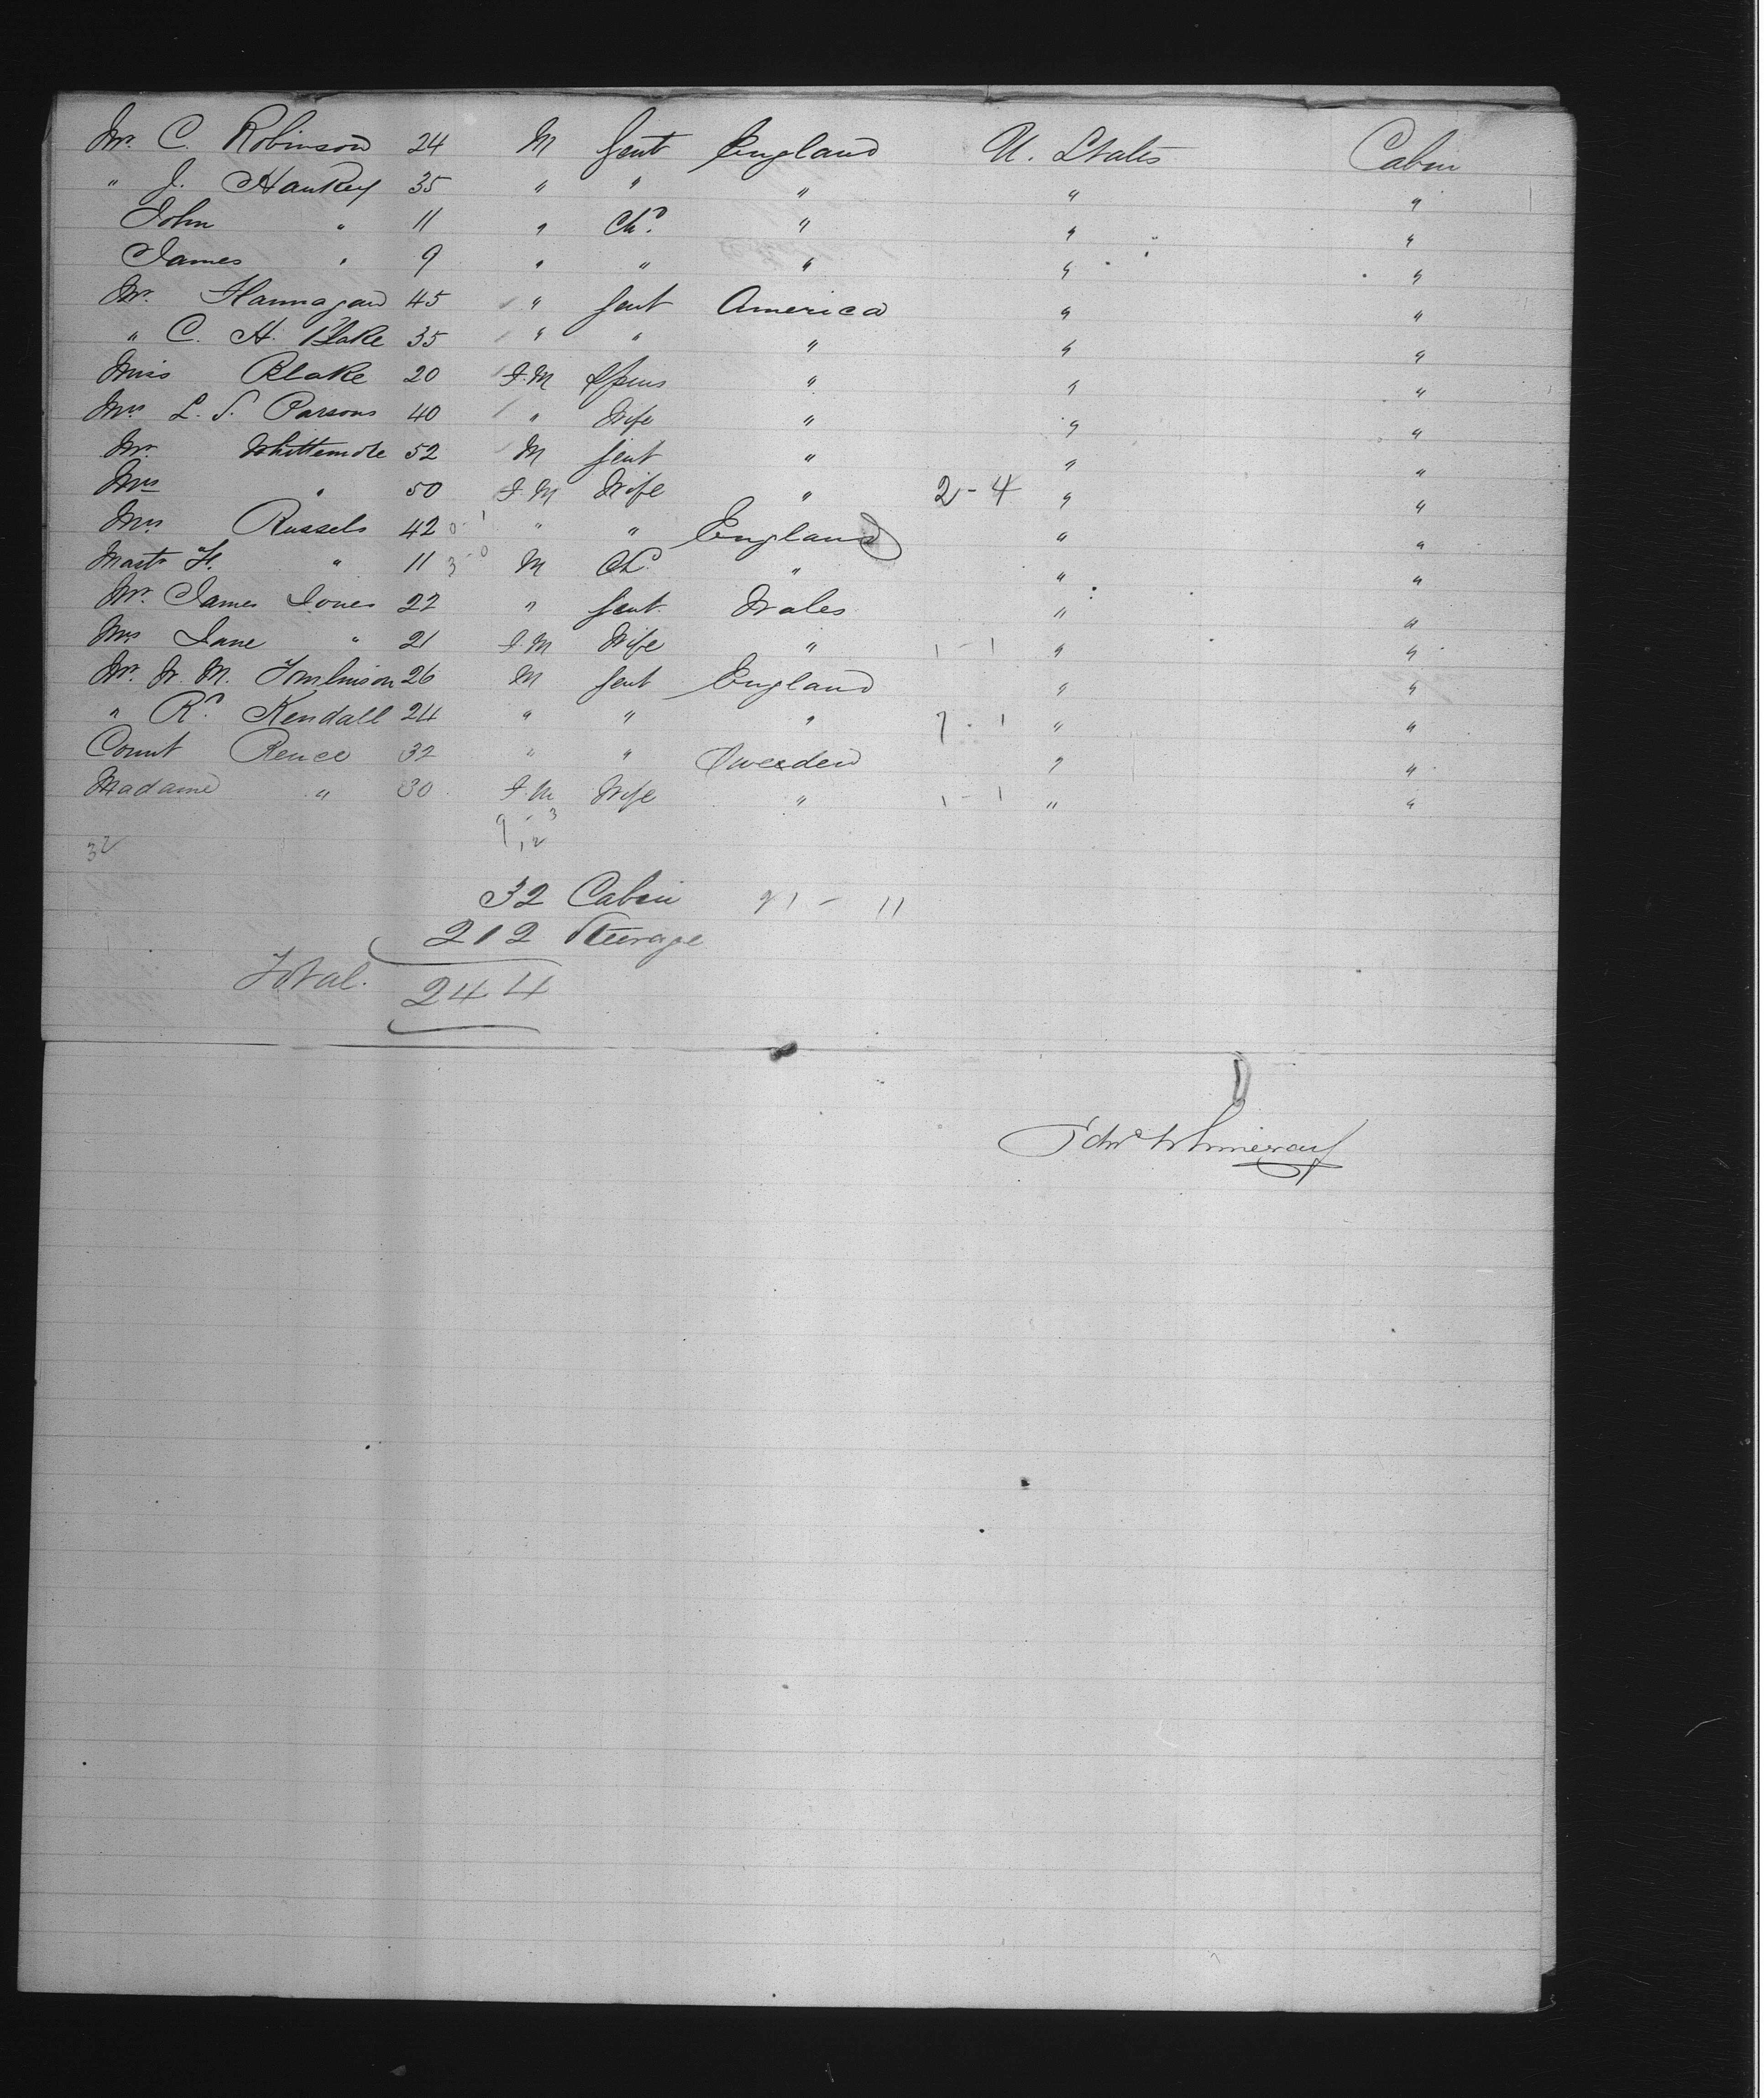 Mr. C. Robinson 24 M Gent England U. States Cabin
" J. Hankey 35 " " " " "
John " 11 " Chd. " " "
James " 9 " " " " "
Mr. Flannagan 45 " Gent America " "
" C. H. Blake 35 " " " " "
Miss Blake 20 F.M Spins " " "
Mrs L. S. Parsons 40 " Wife " " "
Mr. Whittemore 52 M Gent " " "
Mrs " 50 F.M Wife " 2-4 " "
Mrs Russels 42 0-1 " " England " "
Mastr H. " 11 3-0 M Chd " " "
Mr. James Jones 22 " Gent. Wales " "
Mrs Jane " 21 F.M Wife " 1-1 " "
Mr. W. M. Tomlinson 26 M Gent England " "
" Rd. Kendall 24 " " " 7-1 " "
Count Rence 32 " " Sweden " "
Madame " 30 F.M Wife " 1-1 " "
32
32 Cabin 21 - 11
212 Steerage
Total. 244